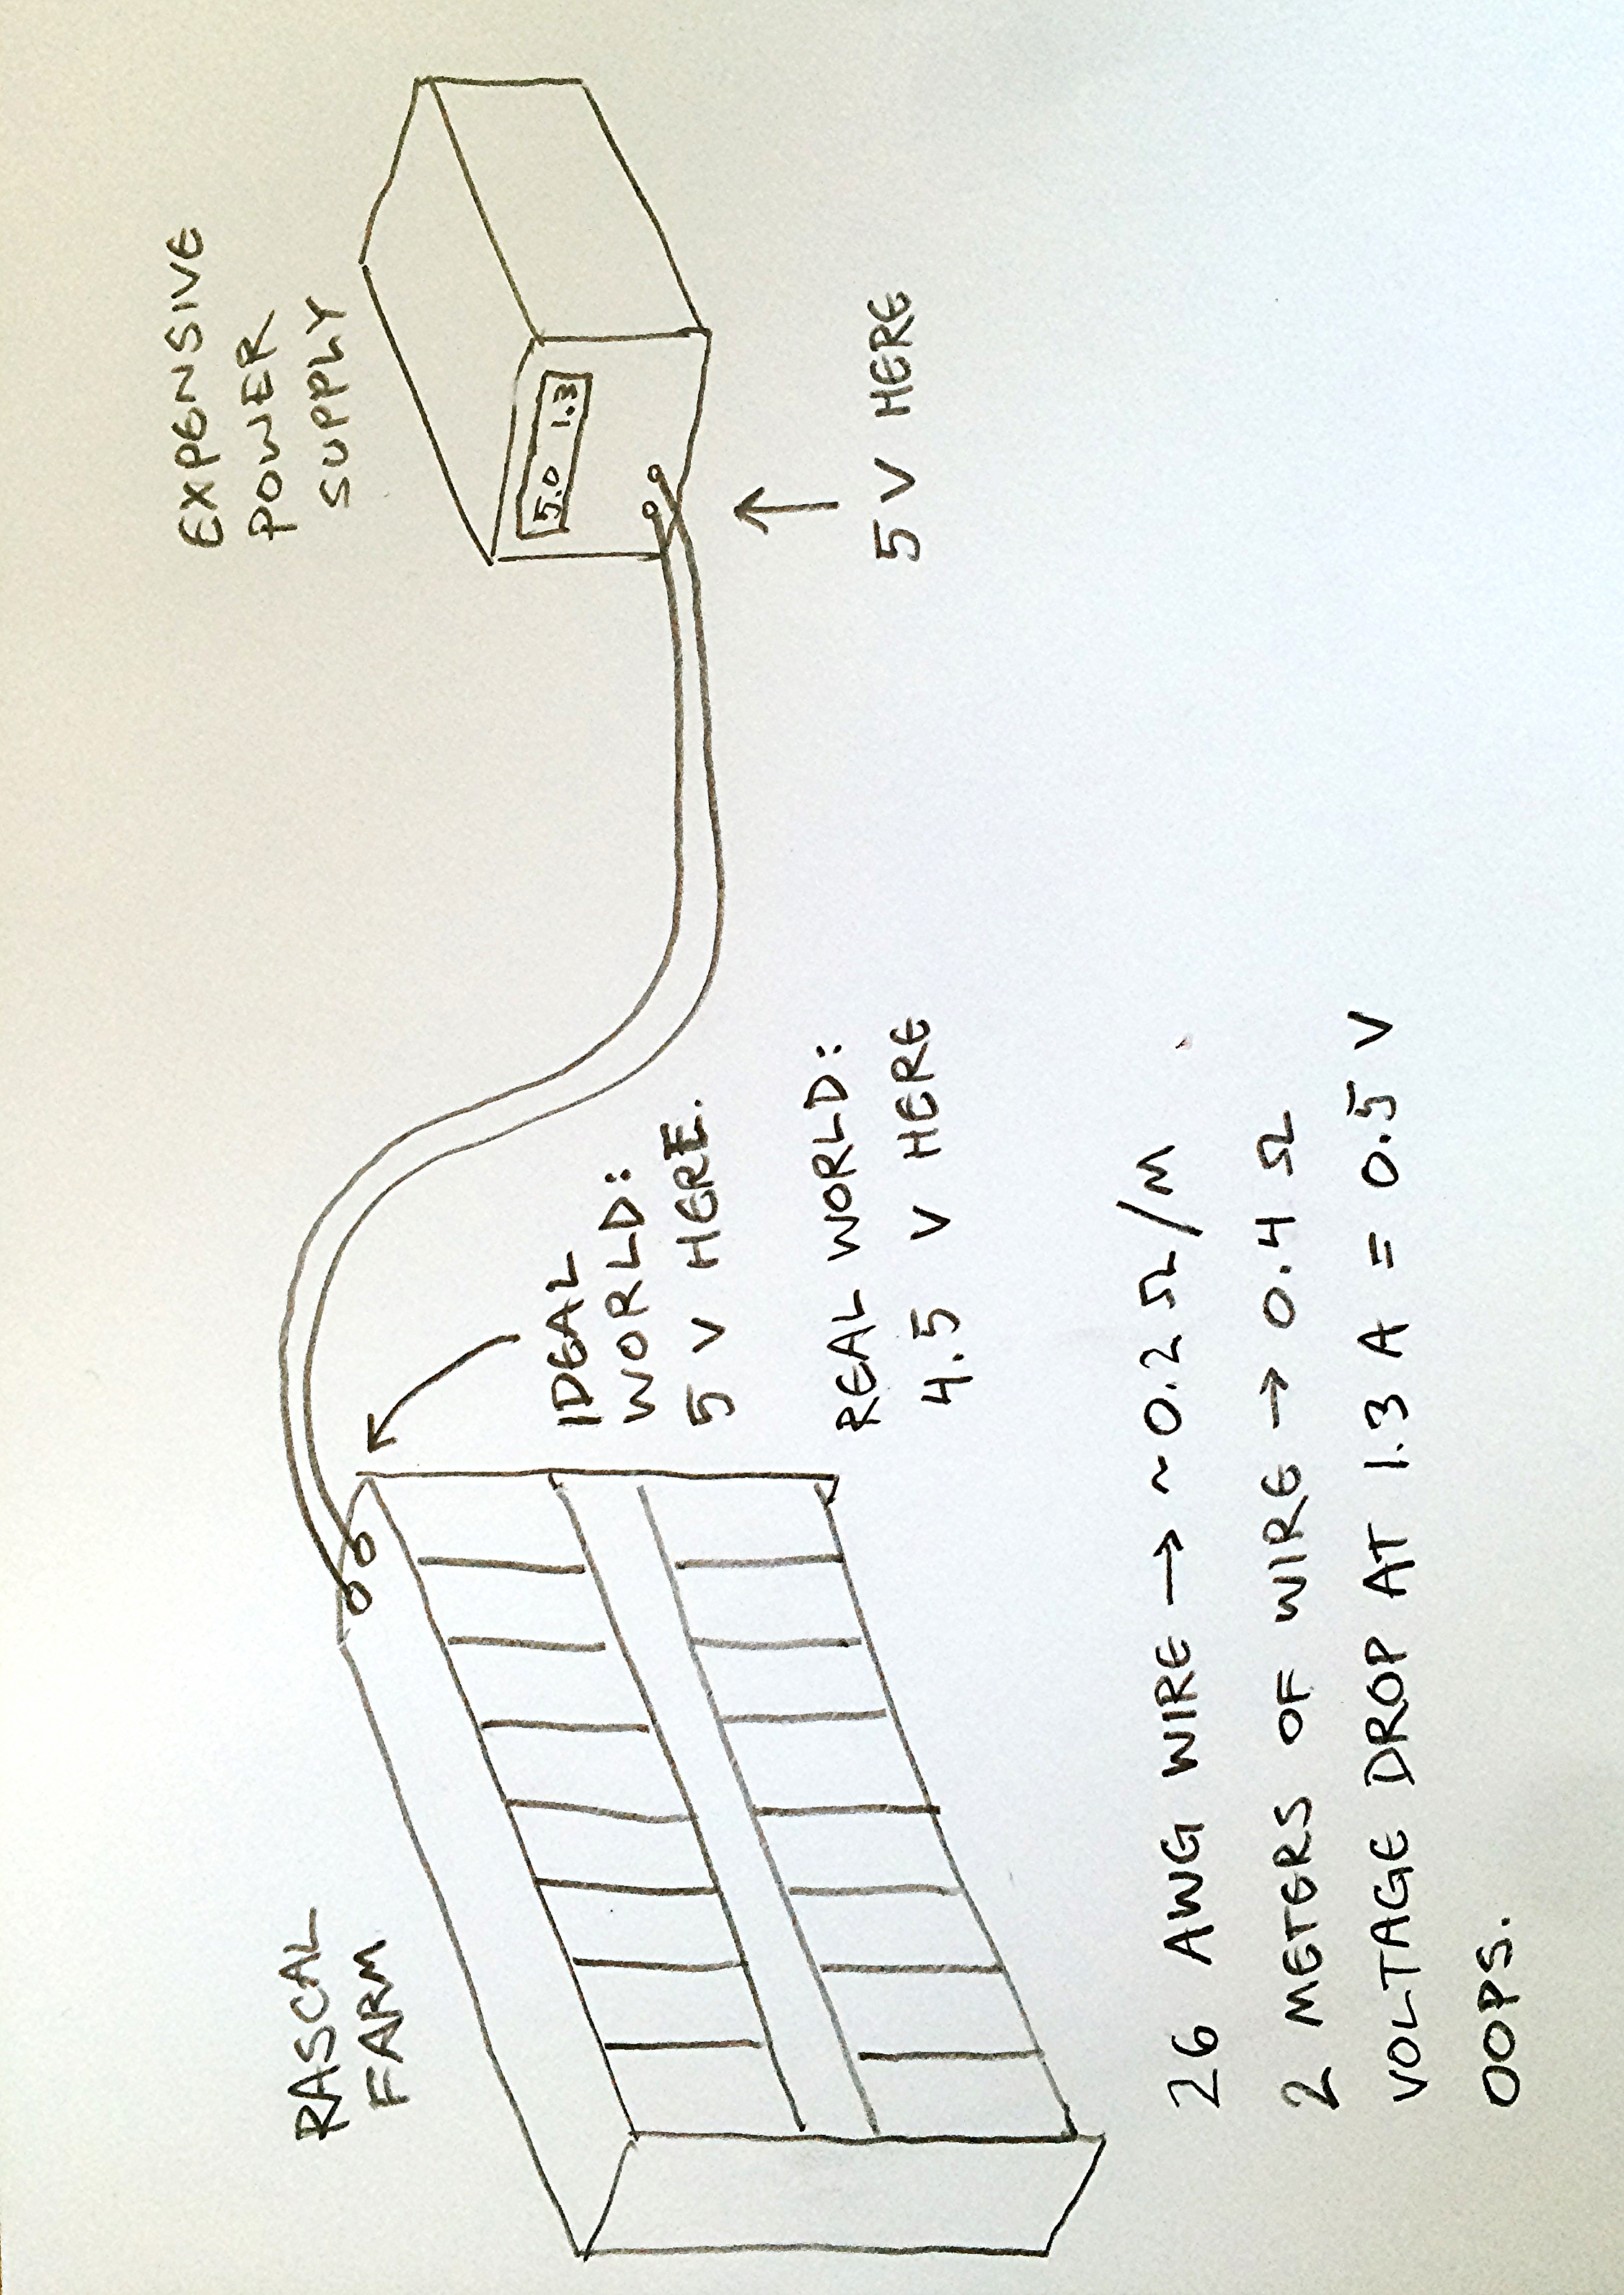 EXPENSIVE
POWER
SUPPLY
5.0 1.3
5 V HERE
RASCAL
FARM
IDEAL
WORLD:
5 V HERE.
REAL WORLD:
4.5 V HERE
26 AWG WIRE → ~0.2 Ω/M
2 METERS OF WIRE → 0.4 Ω
VOLTAGE DROP AT 1.3 A = 0.5 V
OOPS.